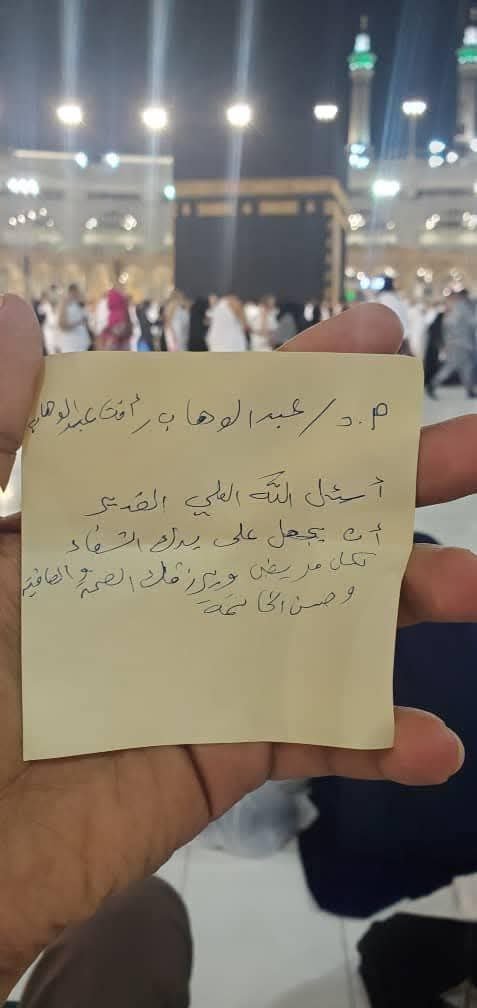 م.د/ عبد الوهاب رأفت عبد الوهاب
أسئل الله العلي القدير
أن يجعل على يدك الشفاء
لكل مريض ويرزقك الصحة والعافية
وحسن الخاتمة